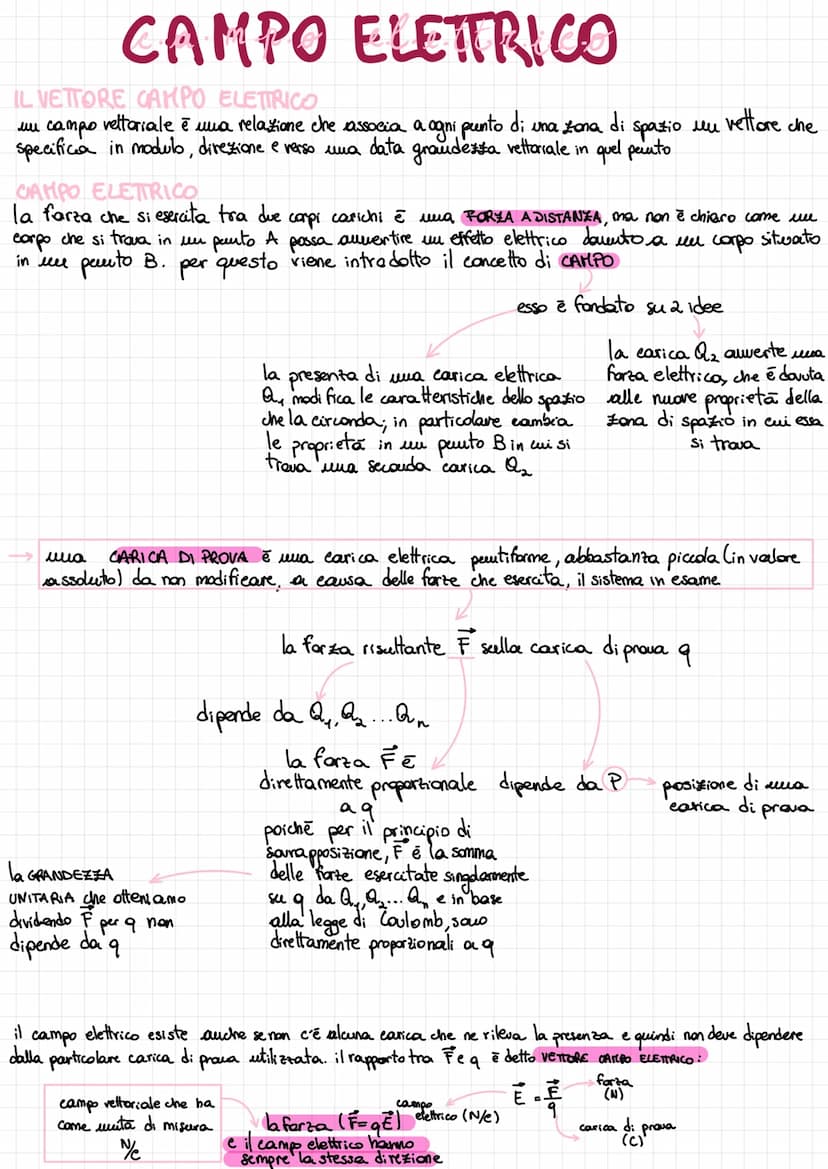 CAMPO ELETTRICO
campo elettrico
IL VETTORE CAMPO ELETTRICO
un campo vettoriale è una relazione che associa a ogni punto di una zona di spazio un vettore che
specifica in modulo, direzione e verso una data grandezza vettoriale in quel punto
CAMPO ELETTRICO
la forza che si esercita tra due corpi carichi è una FORZA A DISTANZA, ma non è chiaro come un
corpo che si trova in un punto A possa avvertire un effetto elettrico dovuto a un corpo situato
in un punto B. per questo viene introdotto il concetto di CAMPO
esso è fondato su 2 idee
la presenza di una carica elettrica
Q₁ modifica le caratteristiche dello spazio
che la circonda; in particolare cambia
le proprietà in un punto B in cui si
trova una seconda carica Q₂
la carica Q₂ avverte una
forza elettrica, che è dovuta
alle nuove proprietà della
zona di spazio in cui essa
si trova
→ una CARICA DI PROVA è una carica elettrica puntiforme, abbastanza piccola (in valore
assoluto) da non modificare, a causa delle forze che esercita, il sistema in esame
la forza risultante F⃗ sulla carica di prova q
dipende da Q₁, Q₂ ... Qₙ
la forza F⃗ è
direttamente proporzionale
a q
poiché per il principio di
sovrapposizione, F⃗ è la somma
delle forze esercitate singolarmente
su q da Q₁, Q₂... Qₙ e in base
alla legge di Coulomb, sono
direttamente proporzionali a q
dipende da P → posizione di una
carica di prova
la GRANDEZZA
UNITARIA che otteniamo
dividendo F⃗ per q non
dipende da q
il campo elettrico esiste anche se non c'è alcuna carica che ne rileva la presenza e quindi non deve dipendere
dalla particolare carica di prova utilizzata. il rapporto tra F⃗ e q è detto VETTORE CAMPO ELETTRICO:
campo vettoriale che ha
come unità di misura
N/C
campo
elettrico (N/C)
E⃗ = F⃗/q
forza
(N)
carica di prova
(C)
la forza (F⃗=qE⃗)
e il campo elettrico hanno
sempre la stessa direzione